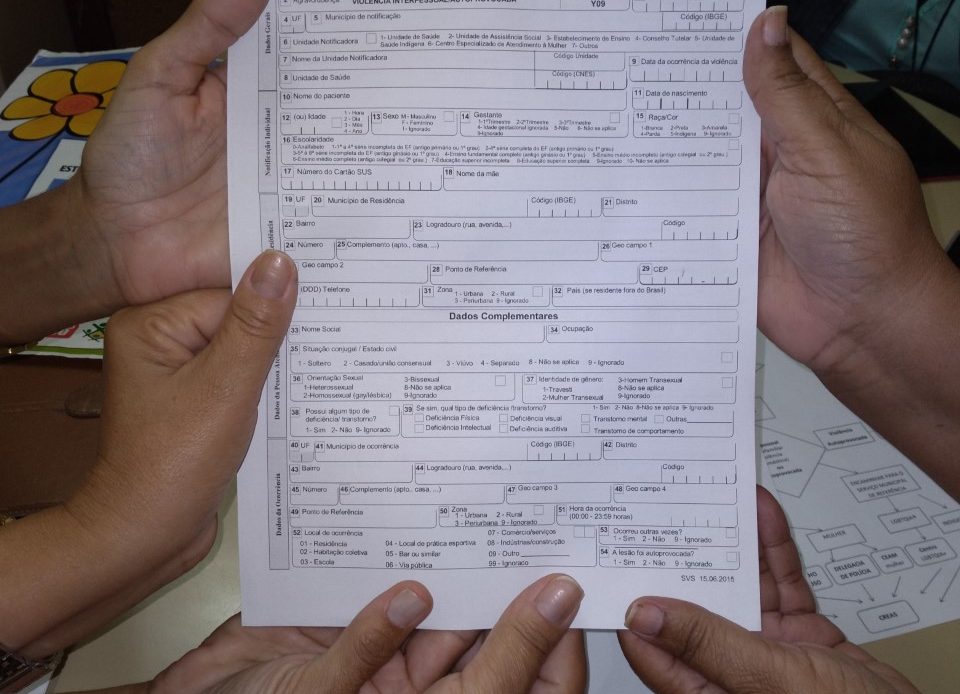 VIOLÊNCIA INTERPESSOAL/AUTOPROVOCADA
Y09
Dados Gerais
4 UF 5 Município de notificação Código (IBGE)
6 Unidade Notificadora 1- Unidade de Saúde 2- Unidade de Assistência Social 3- Estabelecimento de Ensino 4- Conselho Tutelar 5- Unidade de
Saúde Indígena 6- Centro Especializado de Atendimento à Mulher 7- Outros
7 Nome da Unidade Notificadora Código Unidade 9 Data da ocorrência da violência
8 Unidade de Saúde Código (CNES)
Notificação Individual
10 Nome do paciente 11 Data de nascimento
12 (ou) Idade 1 - Hora
2 - Dia
3 - Mês
4 - Ano
13 Sexo M - Masculino
F - Feminino
I - Ignorado
14 Gestante
1-1ºTrimestre 2-2ºTrimestre 3-3ºTrimestre
4- Idade gestacional ignorada 5-Não 6- Não se aplica
9-Ignorado
15 Raça/Cor
1-Branca 2-Preta 3-Amarela
4-Parda 5-Indígena 9- Ignorado
16 Escolaridade
0-Analfabeto 1-1ª a 4ª série incompleta do EF (antigo primário ou 1º grau) 2-4ª série completa do EF (antigo primário ou 1º grau)
3-5ª à 8ª série incompleta do EF (antigo ginásio ou 1º grau) 4-Ensino fundamental completo (antigo ginásio ou 1º grau) 5-Ensino médio incompleto (antigo colegial ou 2º grau )
6-Ensino médio completo (antigo colegial ou 2º grau ) 7-Educação superior incompleta 8-Educação superior completa 9-Ignorado 10- Não se aplica
17 Número do Cartão SUS 18 Nome da mãe
19 UF 20 Município de Residência Código (IBGE) 21 Distrito
22 Bairro 23 Logradouro (rua, avenida,...) Código
24 Número 25 Complemento (apto., casa, ...) 26 Geo campo 1
Geo campo 2 28 Ponto de Referência 29 CEP
(DDD) Telefone 31 Zona 1 - Urbana 2 - Rural
3 - Periurbana 9 - Ignorado
32 País (se residente fora do Brasil)
Dados Complementares
33 Nome Social 34 Ocupação
35 Situação conjugal / Estado civil
1 - Solteiro 2 - Casado/união consensual 3 - Viúvo 4 - Separado 8 - Não se aplica 9 - Ignorado
36 Orientação Sexual 3-Bissexual
1-Heterossexual 8-Não se aplica
2-Homossexual (gay/lésbica) 9-Ignorado
37 Identidade de gênero: 3-Homem Transexual
1-Travesti 8-Não se aplica
2-Mulher Transexual 9-Ignorado
38 Possui algum tipo de
deficiência/ transtorno?
1- Sim 2- Não 9- Ignorado
39 Se sim, qual tipo de deficiência /transtorno? 1- Sim 2- Não 8-Não se aplica 9- Ignorado
Deficiência Física Deficiência visual Transtorno mental Outras
Deficiência Intelectual Deficiência auditiva Transtorno de comportamento
Dados da Ocorrência
40 UF 41 Município de ocorrência Código (IBGE) 42 Distrito
43 Bairro 44 Logradouro (rua, avenida,...) Código
45 Número 46 Complemento (apto., casa, ...) 47 Geo campo 3 48 Geo campo 4
49 Ponto de Referência 50 Zona
1 - Urbana 2 - Rural
3 - Periurbana 9 - Ignorado
51 Hora da ocorrência
(00:00 - 23:59 horas)
52 Local de ocorrência 07 - Comércio/serviços
01 - Residência 04 - Local de prática esportiva 08 - Indústrias/construção
02 - Habitação coletiva 05 - Bar ou similar 09 - Outro
03 - Escola 06 - Via pública 99 - Ignorado
53 Ocorreu outras vezes?
1 - Sim 2 - Não 9 - Ignorado
54 A lesão foi autoprovocada?
1 - Sim 2 - Não 9 - Ignorado
SVS 15.06.2015
Violência
Autoprovocada
ENCAMINHAR PARA O
SERVIÇO MUNICIPAL
DE REFERÊNCIA
MULHER
LGBTQIA+
DELEGACIA
DE POLÍCIA
CEAM
mulher
Centro
LGBTQIA+
CREAS